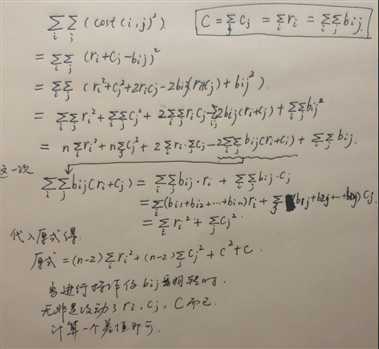 ∑i ∑j (cost(i,j)²)
C = ∑j cj = ∑i ri = ∑i∑j bij
= ∑i ∑j (ri+cj-bij)²
= ∑i∑j (ri²+cj²+2ricj-2bij(ri+cj)+bij²)
= ∑i∑j ri² + ∑i∑j cj² + 2∑i∑j ricj - ∑i∑j 2bij(ri+cj) + ∑i∑j bij²
= n∑i ri² + n∑j cj² + 2∑i ri·∑j cj - 2∑i∑j bij(ri+cj) + ∑i∑j bij.
这一次
∑i∑j bij(ri+cj) = ∑i∑j bij·ri + ∑i∑j bij·cj
= ∑i(bi1+bi2+···+bin)ri + ∑j(b1j+b2j+···+bnj)cj
= ∑i ri² + ∑j cj².
代入原式得.
原式 = (n-2)∑i ri² + (n-2)∑j cj² + c² + c.
当进行操作使 bij 翻转时.
无非是改动了 ri, cj, C 而已.
计算一个差值即可.